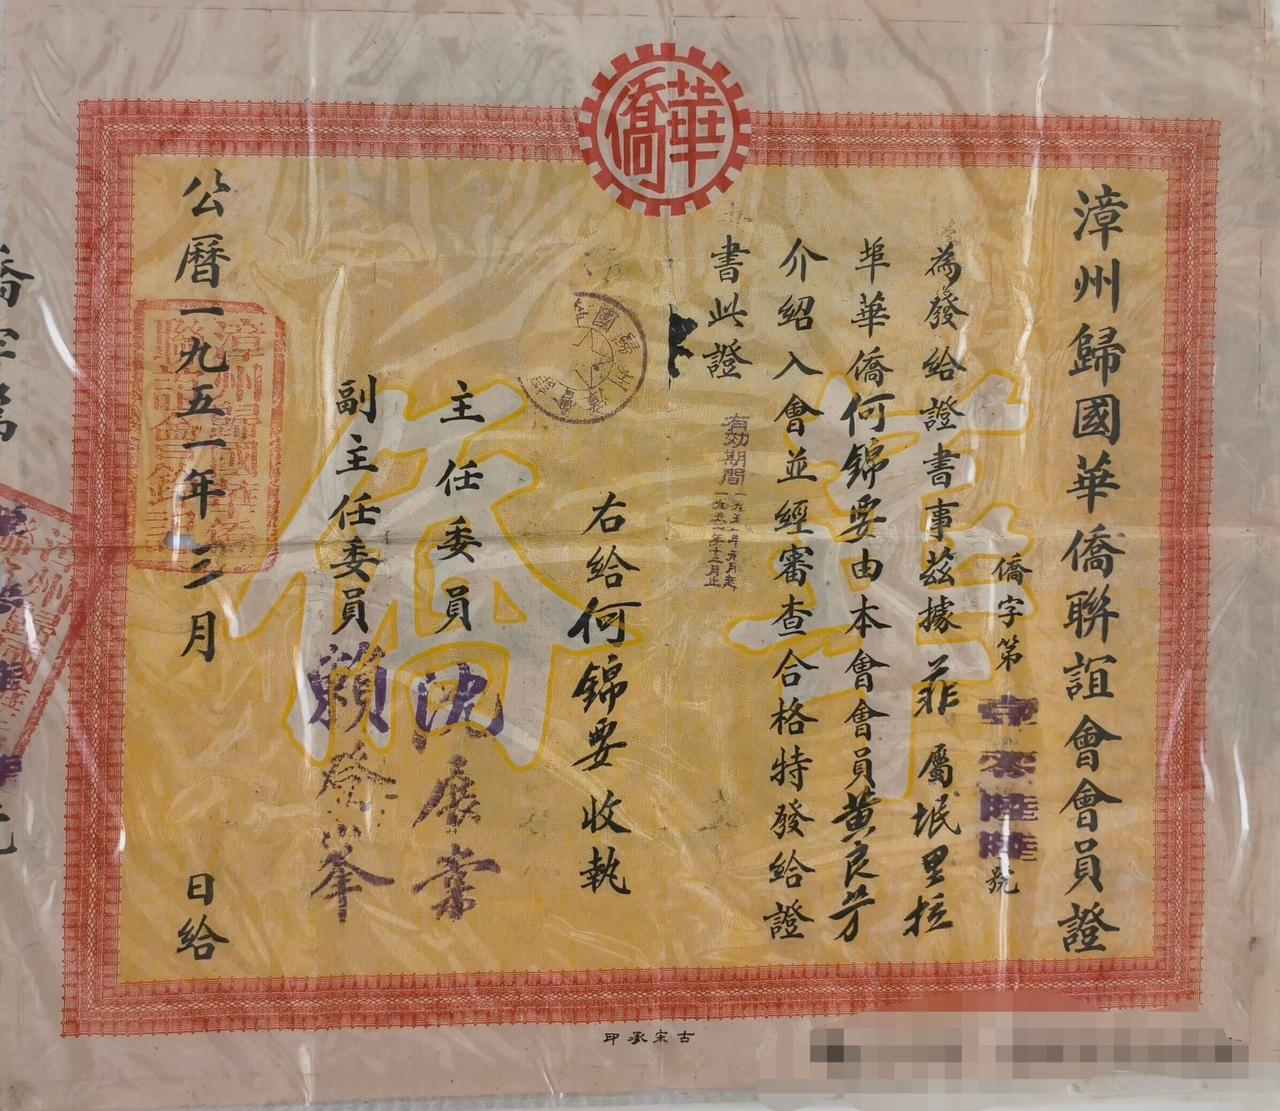 華僑
漳州歸國華僑聯誼會會員證
僑字第壹零陸陸號
為發給證書事茲據菲屬岷里拉
埠華僑何錦要由本會會員黃良芳
介紹入會並經審查合格特發給證
書此證
有効期間
右給何錦要收執
主任委員沈展棠
副主任委員賴
公曆一九五一年三月 日給
漳州歸國華僑
聯誼會
華僑
古宋承印